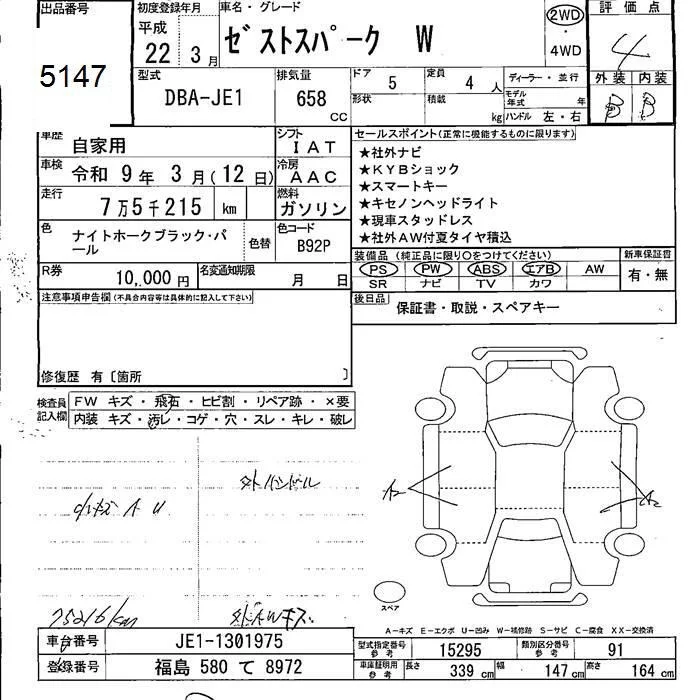 出品番号
5147
初度登録年月
平成
22年 3月
車名・グレード
ゼストスパーク W
2WD
・
4WD
評価点
4
外装 内装
B B
型式
DBA-JE1
排気量
658 cc
ドア 5
定員 4人
形状
積載 kg
ディーラー・並行
モデル年式 年
ハンドル 左・右
車歴
自家用
シフト
IAT
車検
令和 9年 3月(12日)
冷房
AAC
走行
7万5千215 km
燃料
ガソリン
色
ナイトホークブラック・パール
色替
色コード
B92P
R券
10,000円
名変通知期限 月 日
セールスポイント(正常に機能するものに限ります)
★社外ナビ
★KYBショック
★スマートキー
★キセノンヘッドライト
★現車スタッドレス
★社外AW付夏タイヤ積込
装備品(純正品に限り○をつけてください)
PS PW ABS エアB AW
SR ナビ TV カワ
新車保証書
有・無
後日品
保証書・取説・スペアキー
注意事項申告欄(不具合内容等は具体的に記入して下さい)
修復歴 有〔箇所 〕
検査員記入欄
FW キズ・飛石・ヒビ割・リペア跡・×要
内装 キズ・汚レ・コゲ・穴・スレ・キレ・破レ
外ハンドル
小キズ A U
A2
A2
スペア
75216km
外AWキズ
A-キズ E-エクボ U-凹み W-補修跡 S-サビ C-腐食 XX-交換済
車台番号
JE1-1301975
登録番号
福島 580 て 8972
型式指定番号 参考
15295
類別区分番号 参考
91
車庫証明用 参考
長さ 339 cm
幅 147 cm
高さ 164 cm